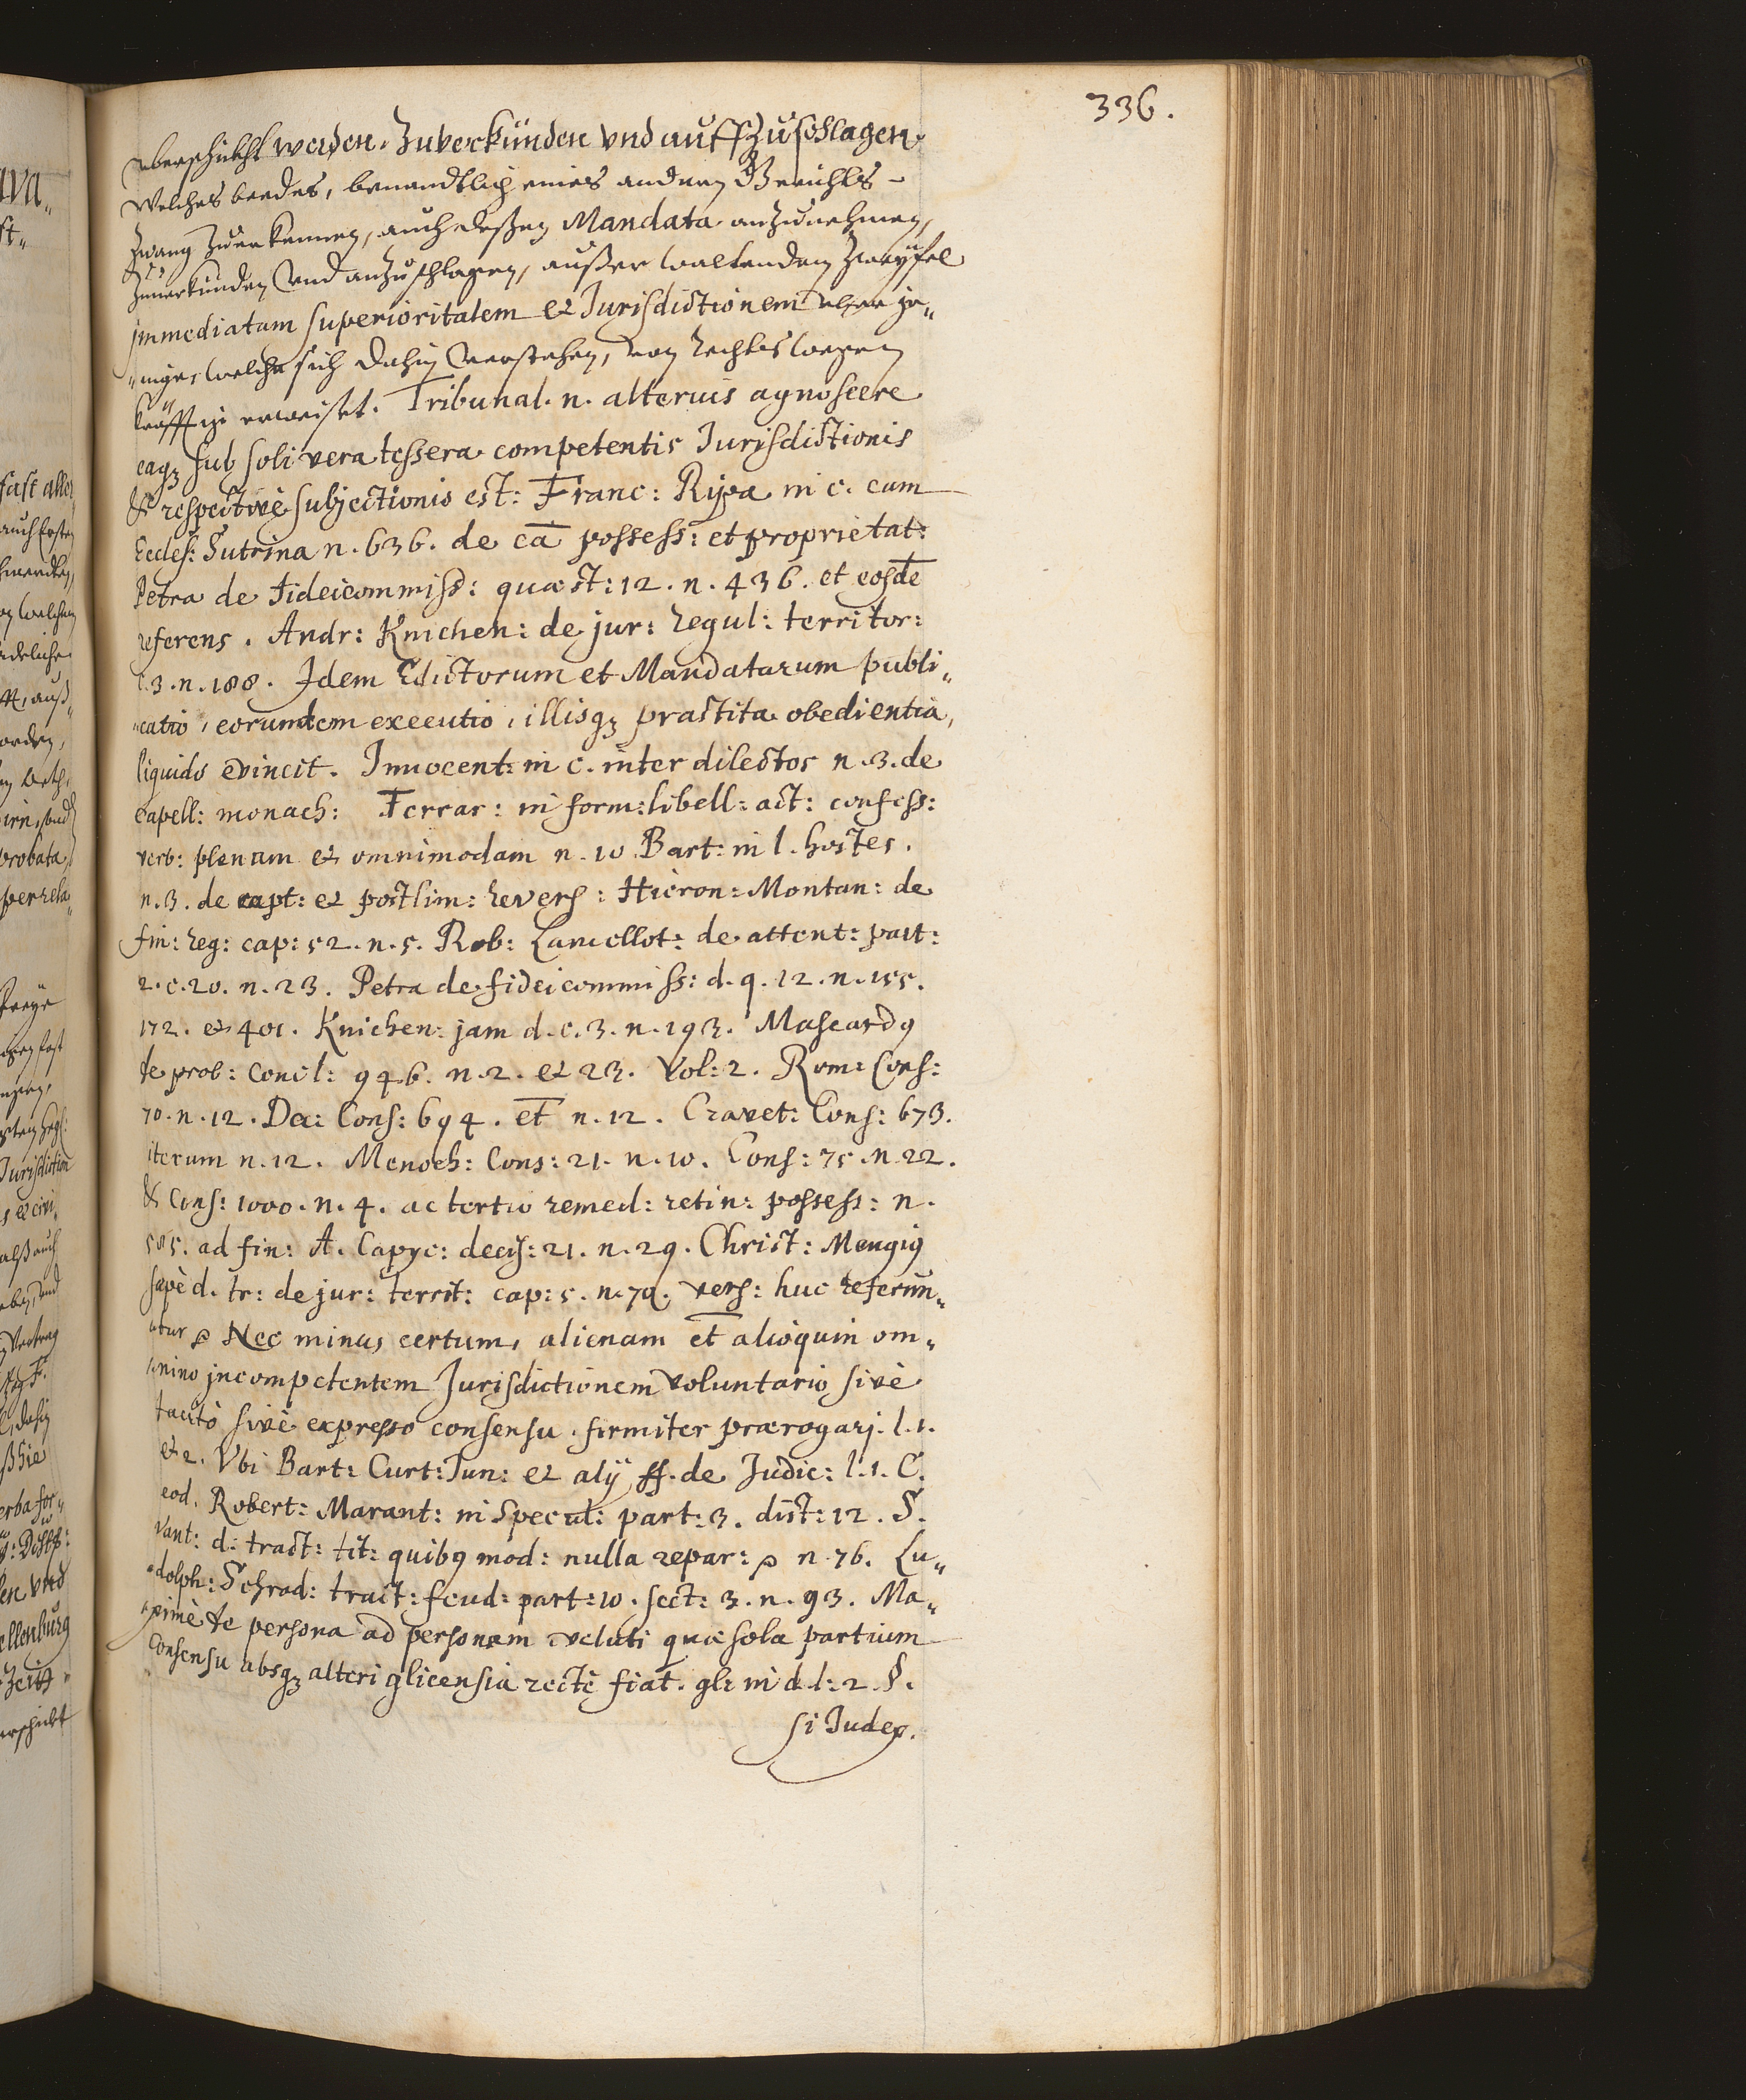 336.
vberschickht werden. Zuverkünden vnd auffzuschlagen.
Welches beedes, benandtlich eines andern Gerichts-
zwang zuerkennen, auch deßen Mandata anzunehmen,
Zuuerkünden vnd anzuschlagen, außer waltenden Zweÿfel
jmmediatam superioritatem et Jurisdictionem vber je„
„nige, welche sich dahin verstehen, von Rechts wegen
kräfftig erweiset. Tribunal. n. alterius agnoscere
eaq3 sub soli vera tessera competentis Jurisdictionis
& respectivè subjectionis est: Franc: Ripa in c. cum
Eccles: Sutrina n. 636. de cā possess: et proprietat:
Petra de Fideicommiss: quæst: 12. n. 436. et eosdē
referens. Andr: Knichen: de jur: regul: territor:
c. 3. n. 188. Jdem Edictorum et Mandatarum publi„
„catio, eorumdem executio, illisq3 præstita obedientia,
liquido evincit. Innocent: in c. inter dilectos n. 3. de
capell: monach: Ferrar: in form: libell: act: confess:
verb: plenam et omnimodam n. 10. Bart: in l. hostes.
n. 3. de capt: et postlim: revers: Hieron: Montan: de
fin: reg: cap: 52. n. 5. Rob: Lancellot: de attent: part:
2. c. 20. n. 23. Petra de fideicommiss: d. q. 12. n. 155.
172. et 401. Knichen: jam d. c. 3. n. 193. Mascard9
de prob: Concl: 946. n. 2. et 23. Vol: 2. Rom: Cons:
70. n. 12. Dec: Cons: 694. et n. 12. Cravet: Cons: 673.
iterum n. 12. Menoch: Cons: 21. n. 10. Cons: 75. n. 22.
& Cons: 1000. n. 4. ac tertio remed: retin: possess: n.
585. ad fin: A. Capyc: decis: 21. n. 29. Christ: Mengig
sæpè d. tr: de jur: territ: cap: 5. n. 79. vers: huc referun„
„tur Nec minus certum, alienam et alioquin om„
„nino jncompetentem Jurisdictionem voluntario sivè
tacitò sivè expresso consensu firmiter prærogarj. l. 1.
et 2. Vbi Bart: Curt: Jun: et alÿ ff. de Judic: l. 1. C.
eod. Robert: Marant: in Specul: part: 3. dist: 12. S.
Vant: d: tract: tit: quib9 mod: nulla repar: n. 76. Lu„
„dolph: Schrad: tract: feud: part: 10. sect: 3. n. 93. Ma„
„ximè de persona ad personam veluti quæ sola partium
consensu absq3 alteri9 licensia rectè fiat. gl: in d. l: 2. §.
si Judex.